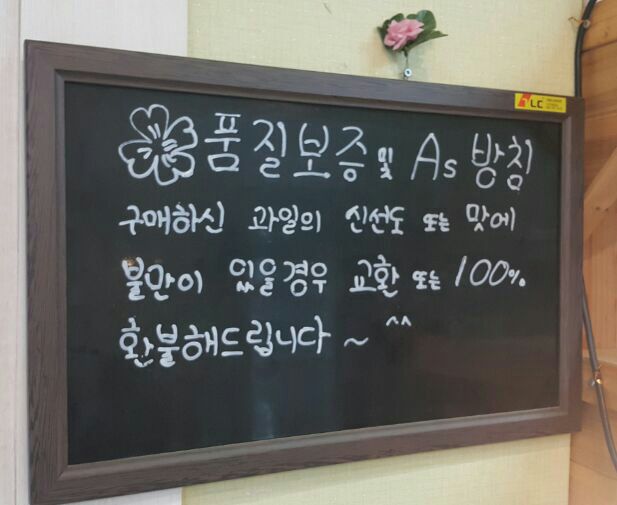 품질보증 및 As 방침
구매하신 과일의 신선도 또는 맛에
불만이 있을경우 교환 또는 100%
환불해드립니다 ~ ^^
LC